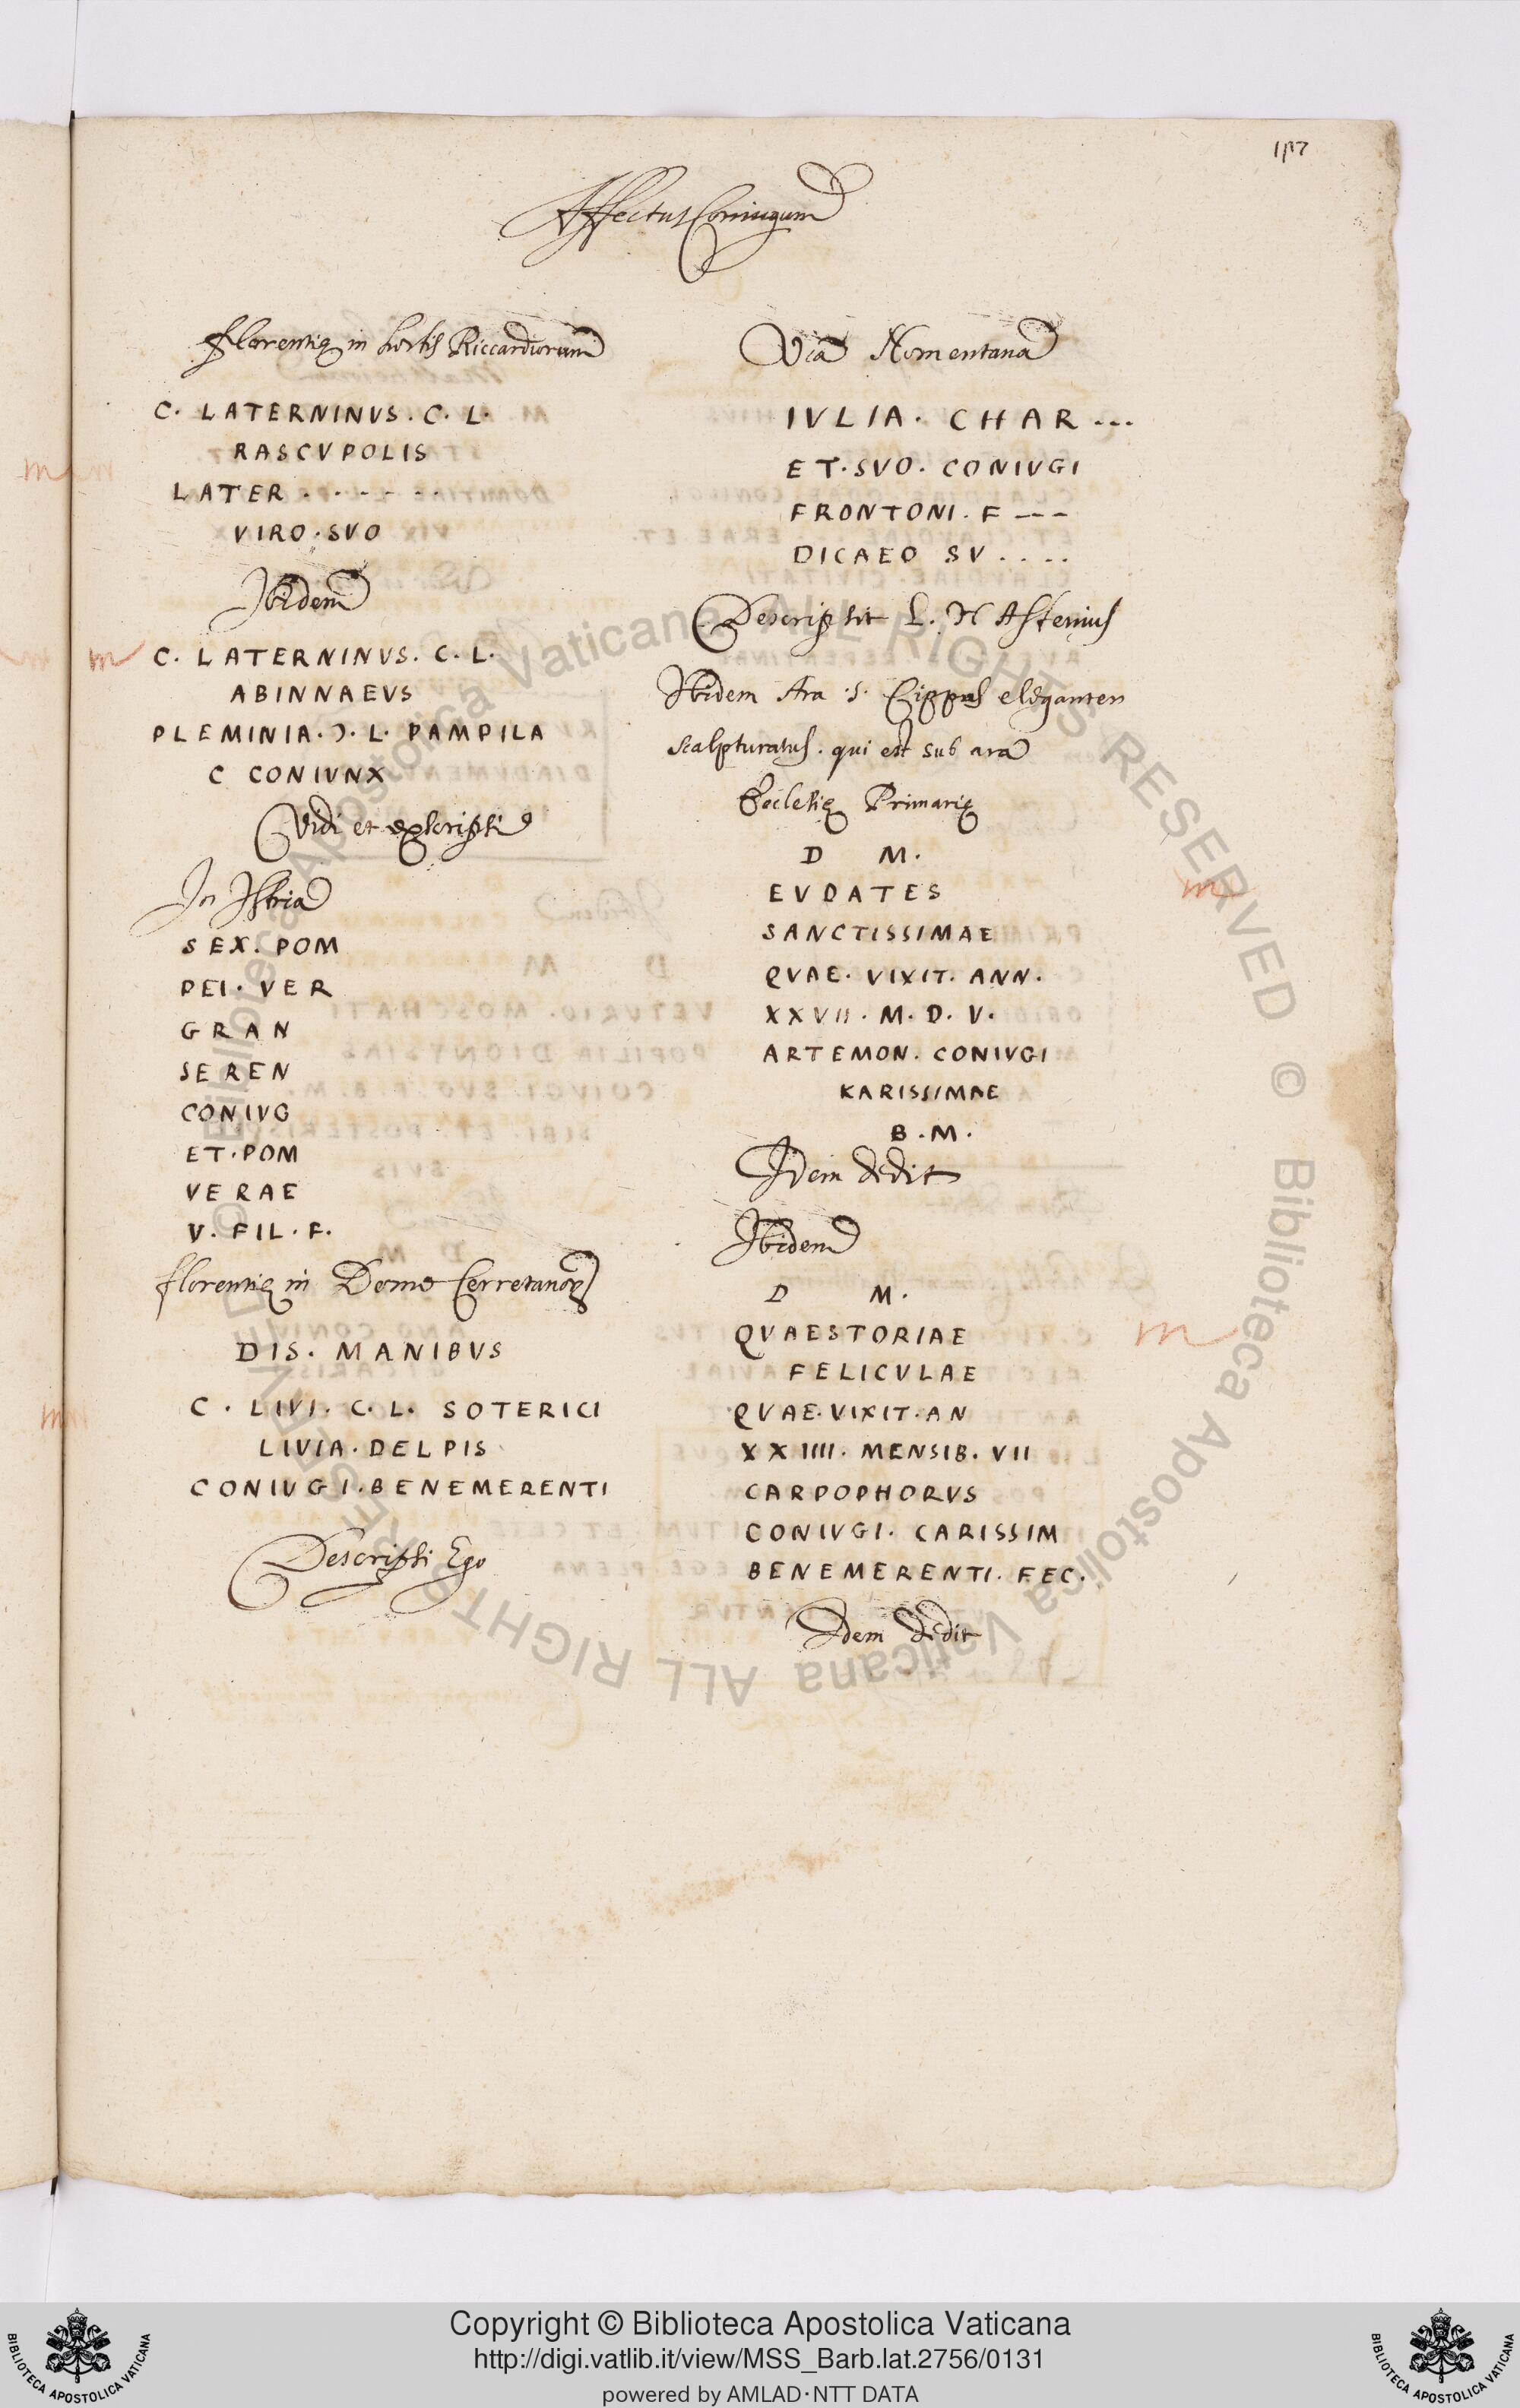 117
Affectus Coniugum
Florentię in hortis Riccardiorum
C. LATERNINVS. C. L.
RASCVPOLIS
LATER . . - - - . .
VIRO. SVO
Ibidem
m C. LATERNINVS. C. L.
ABINNAEVS
PLEMINIA. Ɔ. L. PAMPILA
C CONIVNX
Vidi et exscripsi
In Istria
SEX. POM
PEI. VER
GRAN
SEREN
CONIVG
ET. POM
VERAE
V. FIL. F.
florentię in Domo Cerretanoꝝ
DIS. MANIBVS
C. LIVI. C. L. SOTERICI
LIVIA. DELPIS
CONIVGI. BENEMERENTI
Descripsi Ego
Via Nomentana
IVLIA. CHAR ---
ET. SVO. CONIVGI
FRONTONI. F ---
DICAEO SV . . . .
Descripsit L. H Astenius
Ibidem Ara .s. Cippus eleganter
scalpturatus. qui est sub ara
Ecclesię Primarię
D M.
EVDATES
m
SANCTISSIMAE
QVAE. VIXIT. ANN.
XXVII. M. D. V.
ARTEMON. CONIVGI
KARISSIMAE
B. M.
Idem dedit
Ibidem
D M.
QVAESTORIAE
m
FELICVLAE
QVAE. VIXIT. AN
XXIIII. MENSIB. VII
CARPOPHORVS
CONIVGI. CARISSIM
BENEMERENTI. FEC.
Idem dedit
© Biblioteca Apostolica Vaticana ALL RIGHTS RESERVED © Biblioteca Apostolica Vaticana ALL RIGHTS RESERVED
Copyright © Biblioteca Apostolica Vaticana
http://digi.vatlib.it/view/MSS_Barb.lat.2756/0131
powered by AMLAD·NTT DATA
BIBLIOTECA APOSTOLICA VATICANA
BIBLIOTECA APOSTOLICA VATICANA